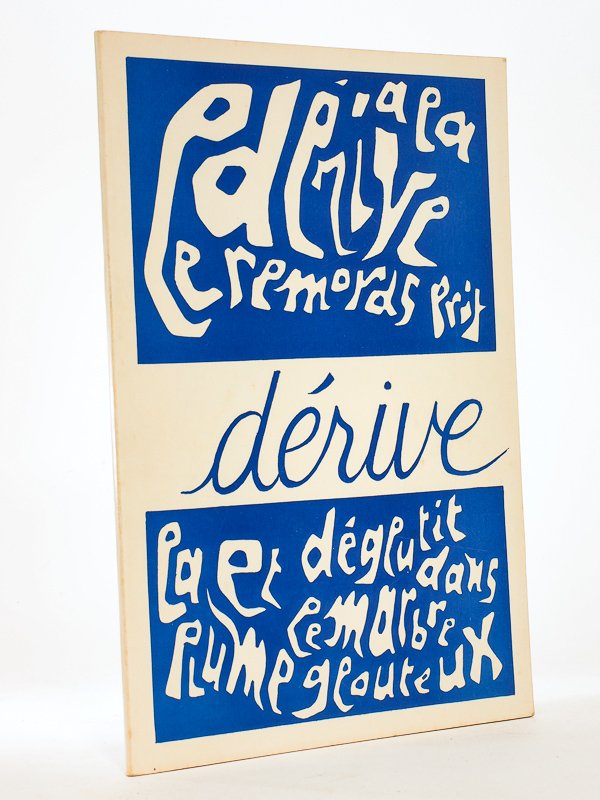 à la
dérive
le remords prit
dérive
la et déglutit
dans
plume le marbre
glouteux